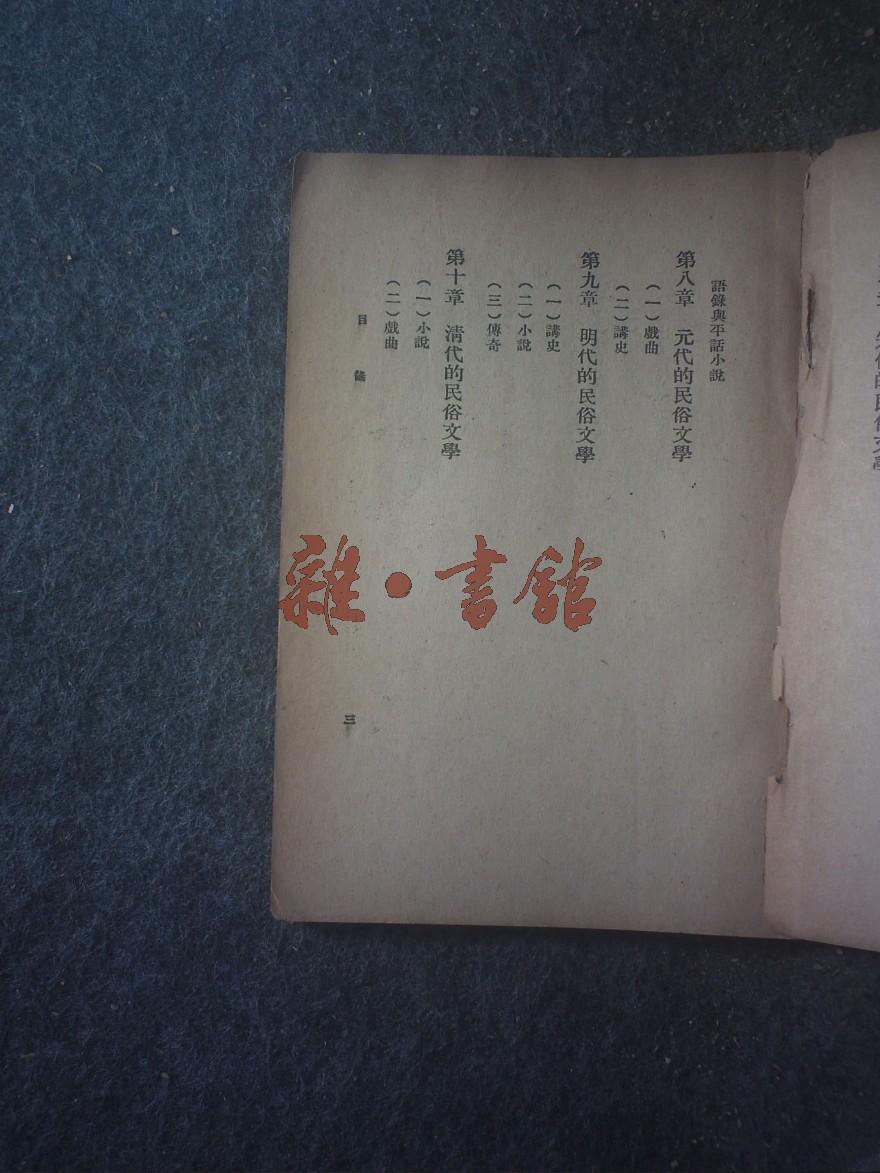 語錄與平話小說
第八章　元代的民俗文學
（一）戲曲
（二）講史
第九章　明代的民俗文學
（一）講史
（二）小說
（三）傳奇
第十章　清代的民俗文學
（一）小說
（二）戲曲
目錄
三
雜・書館